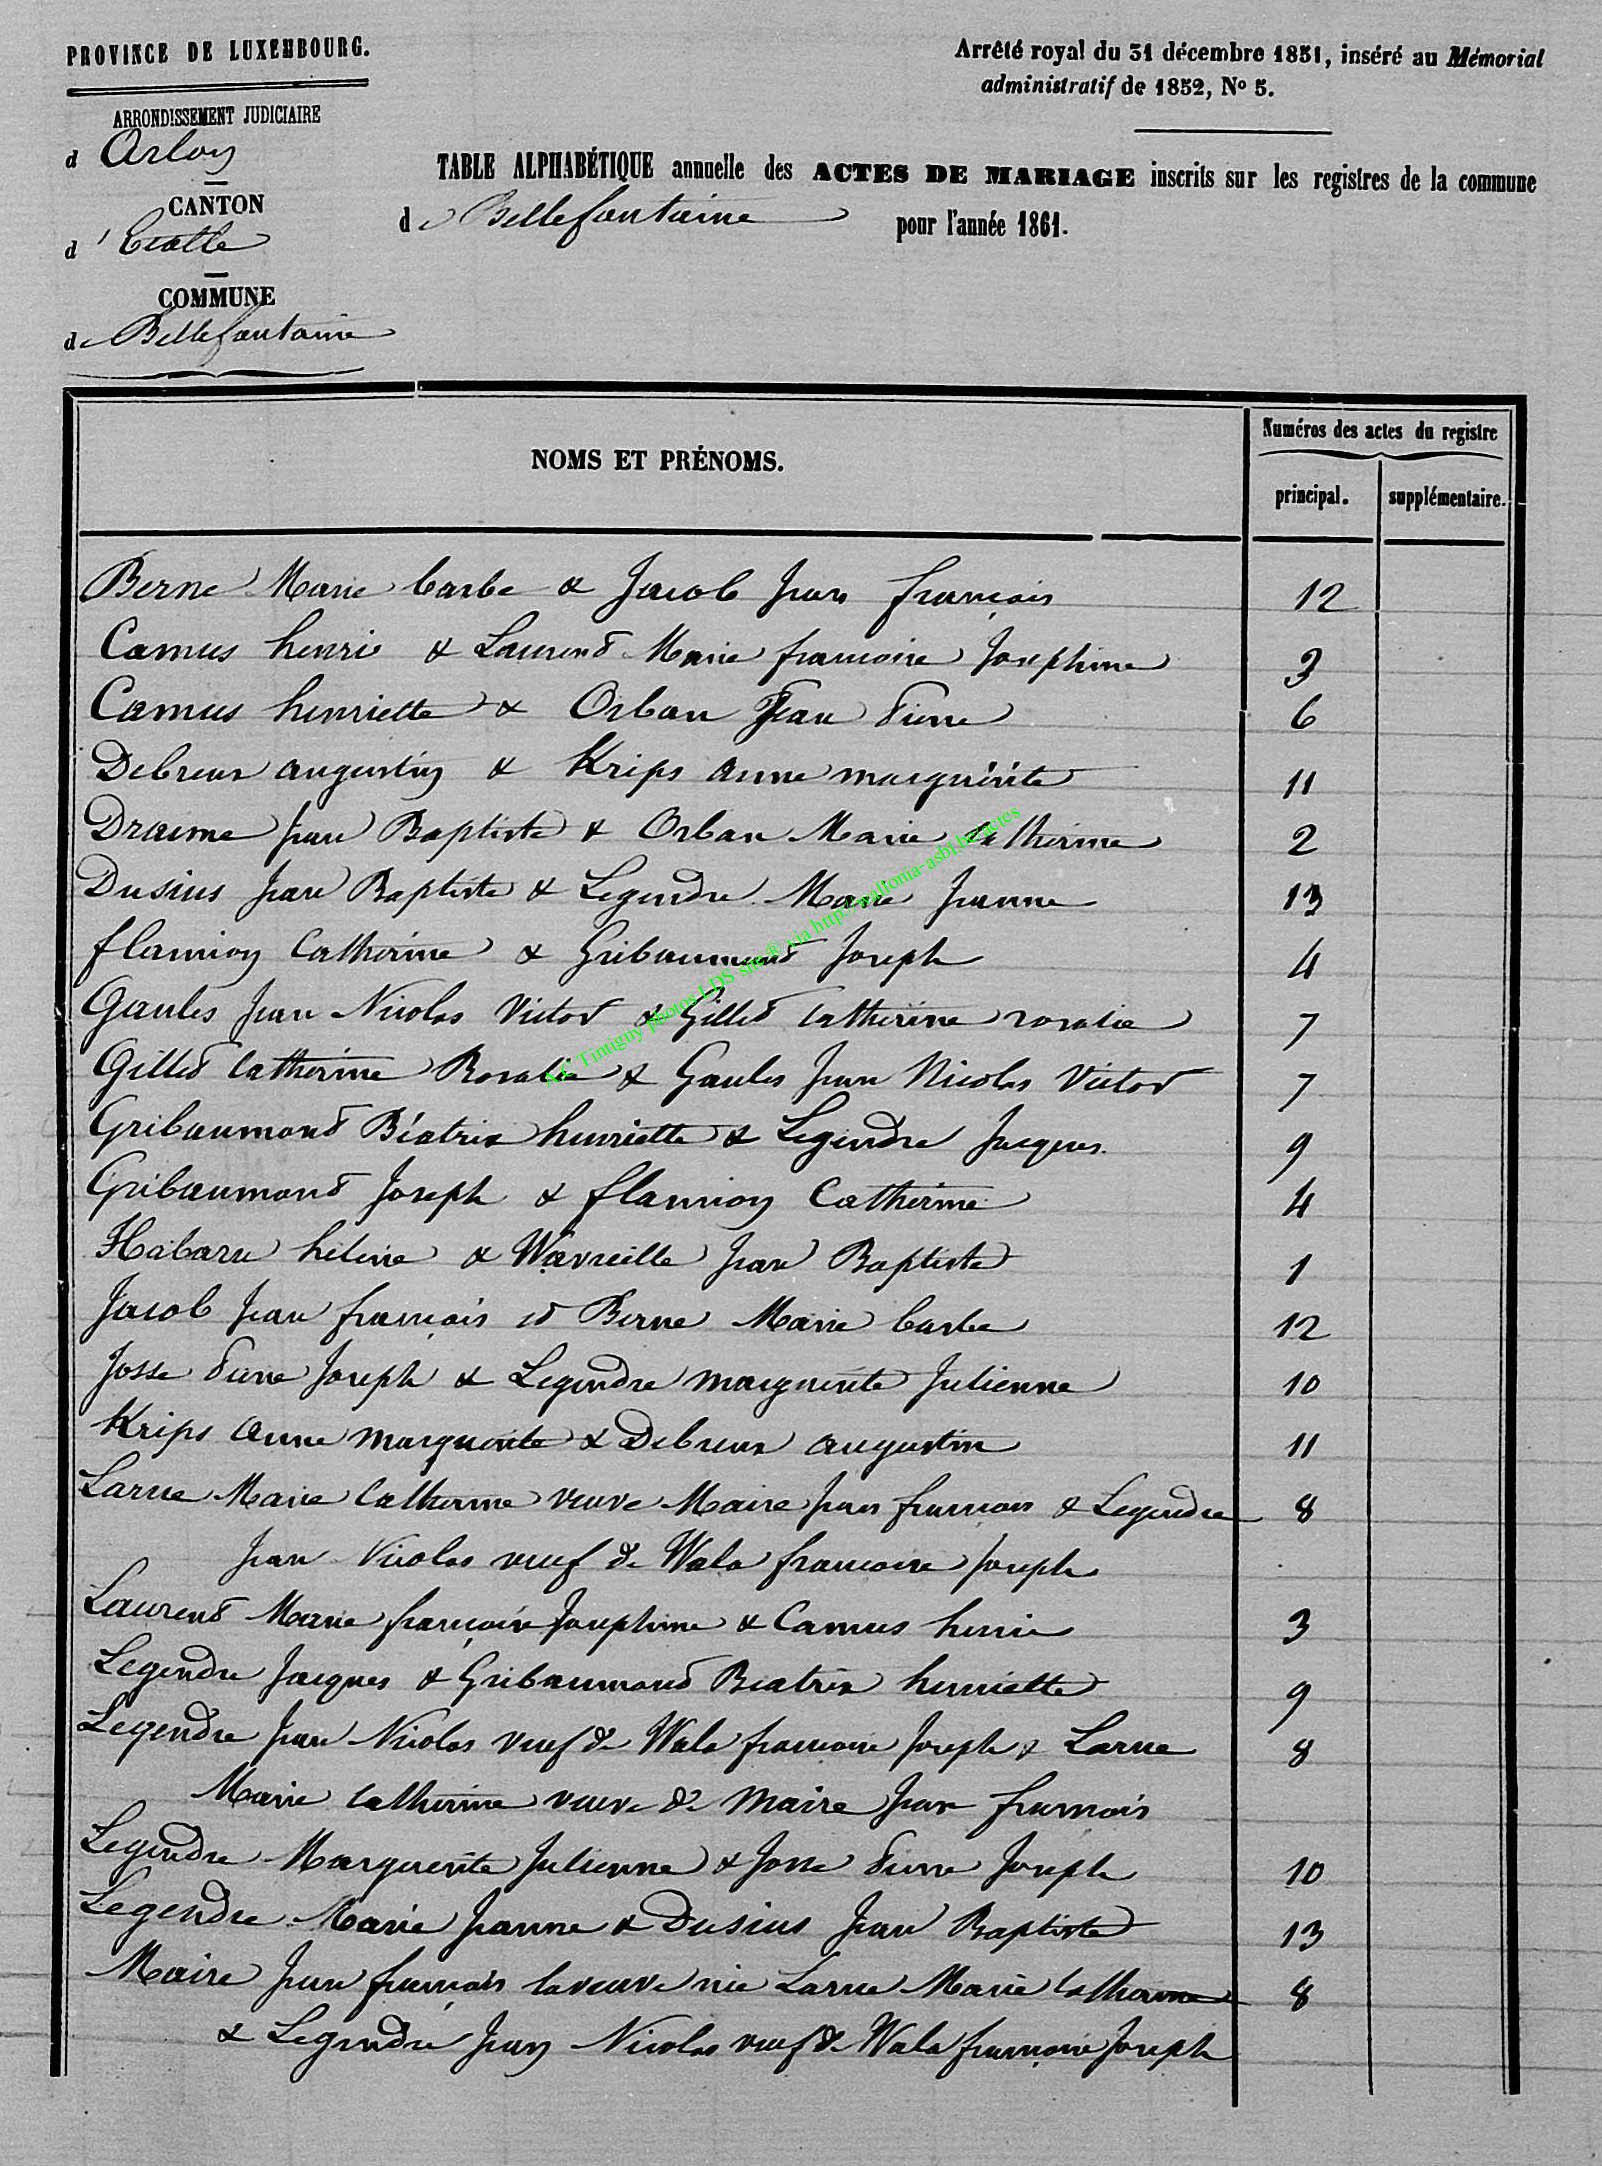 PROVINCE DE LUXEMBOURG.
Arrêté royal du 31 décembre 1851, inséré au Mémorial
administratif de 1852, No 5.
ARRONDISSEMENT JUDICIAIRE
d Arlon
CANTON
d' Etalle
COMMUNE
de Bellefontaine
TABLE ALPHABÉTIQUE annuelle des ACTES DE MARIAGE inscrits sur les registres de la commune
de Bellefontaine pour l'année 1861.
NOMS ET PRÉNOMS.
Numéros des actes du registre
principal. supplémentaire.
Berne Marie barbe & Jacob Jean françois 12
Camus henri & Laurend Marie francoise Josephine 3
Camus henriette & Orban Jean Pierre 6
Debreux augustin & Krips anne marguérite 11
Draime Jean Baptiste & Orban Marie Catherine 2
Dusius Jean Baptiste & Legendre Marie Jeanne 13
flamion Catherine & Gribaumond Joseph 4
Gaules Jean Nicolas Victor & Gilled Catherine rosalie 7
Gilled Catherine Rosalie & Gaules Jean Nicolas Victor 7
Gribaumond Béatrix henriette & Legendre Jacques. 9
Gribaumond Joseph & flamion Catherine 4
Habaru hélène & Wavreille Jean Baptiste 1
Jacob Jean françois et Berne Marie barbe 12
Josse Pierre Joseph & Legendre marguerite Julienne 10
Krips anne marguerite & Debreux augustin 11
Larue Marie Catherine veuve Maire Jean francois & Legendre 8
Jean Nicolas veuf de Wala francoise Joseph
Laurend Marie françoise Josephine & Camus henri 3
Legendre Jacques & Gribaumond Beatrix henriette 9
Legendre Jean Nicolas veuf de Wala francoise Joseph & Larue 8
Marie Catherine veuve de Maire Jean francois
Legendre Marguerite Julienne & Josse Pierre Joseph 10
Legendre Marie Jeanne & Dusius Jean Baptiste 13
Maire Jean françois la veuve née Larue Marie Catherine 8
& Legendre Jean Nicolas veuf de Wala françoise Joseph
A.C Tintigny photos LDS via http://wallonia-asbl.be/actes